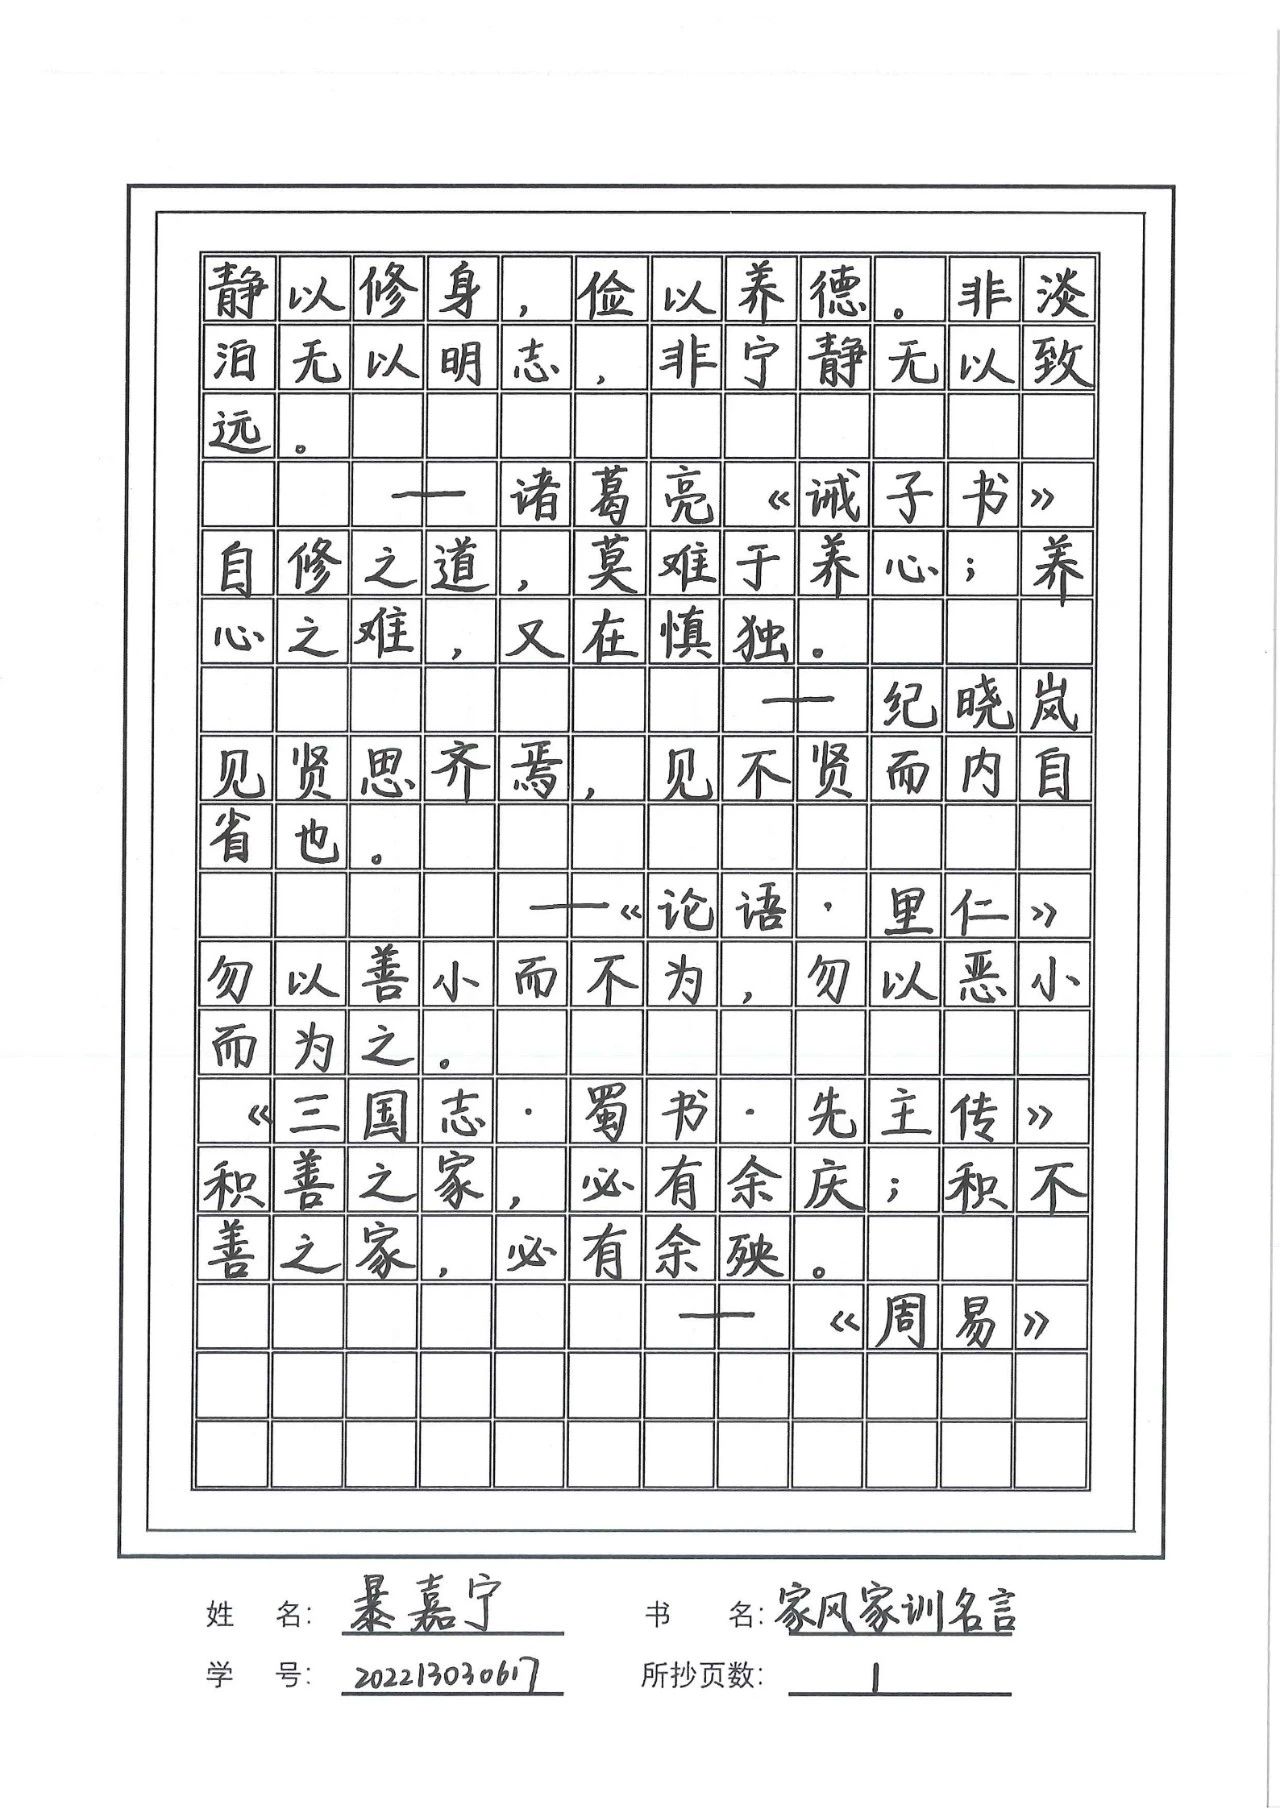 静以修身，俭以养德。非淡
泊无以明志，非宁静无以致
远。
——诸葛亮《诫子书》
自修之道，莫难于养心；养
心之难，又在慎独。
——纪晓岚
见贤思齐焉，见不贤而内自
省也。
——《论语·里仁》
勿以善小而不为，勿以恶小
而为之。
《三国志·蜀书·先主传》
积善之家，必有余庆；积不
善之家，必有余殃。
——《周易》
姓 名：暴嘉宁 书 名：家风家训名言
学 号：202213030617 所抄页数：1